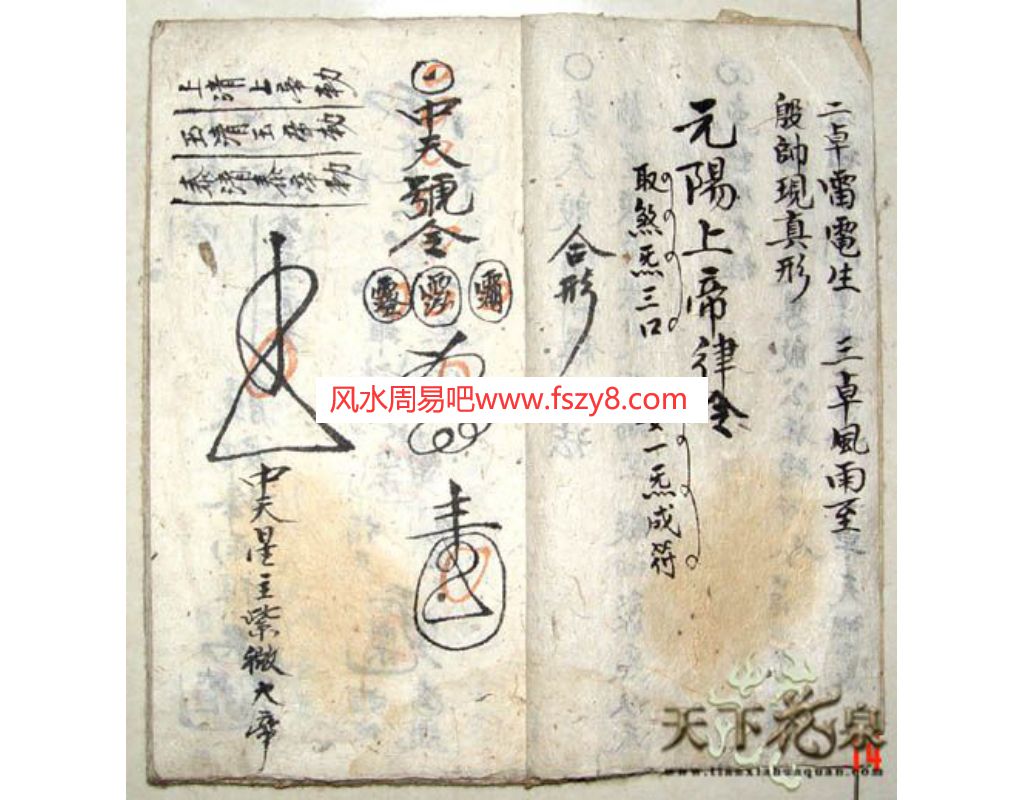 二卓雷電生 三卓風雨至
殷帥現真形
元陽上帝律令
取煞炁三口
一炁成符
合形
中天號令
上清上帝勅
玉清玉帝勅
泰清泰帝勅
中天星主紫微大帝
风水周易吧www.fszy8.com
天下花泉
www.tianxiahuaquan.com
14